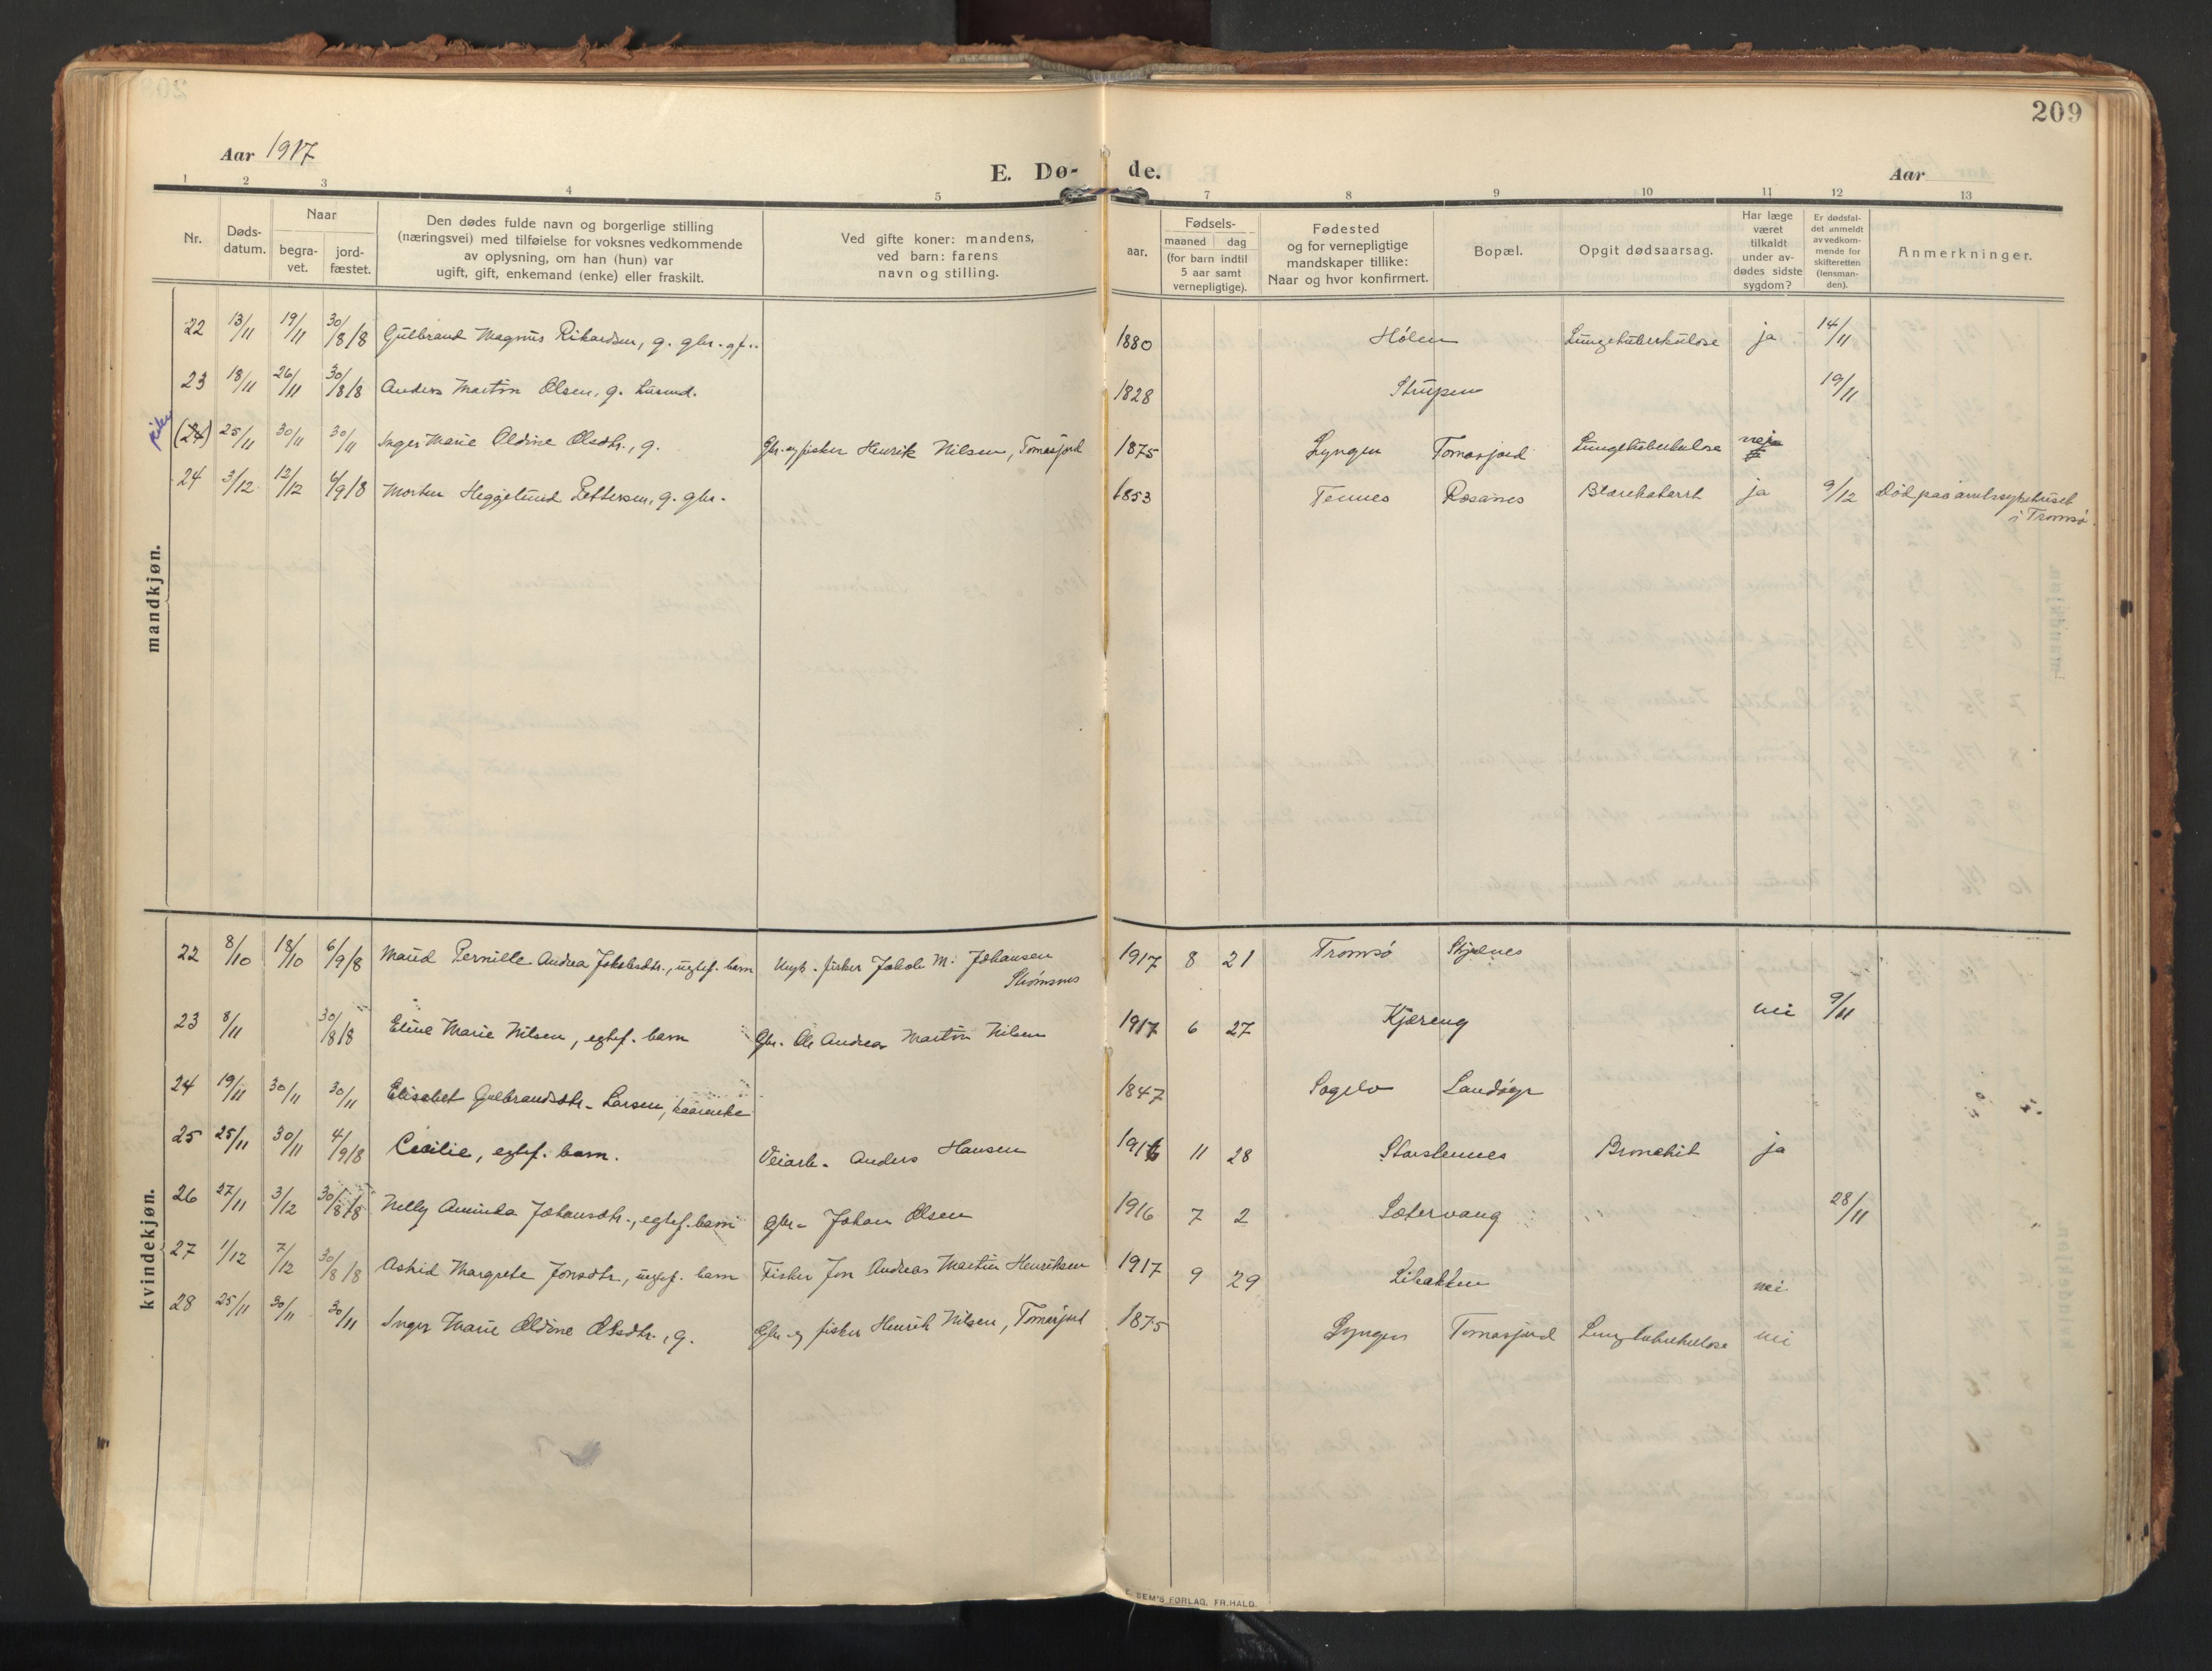 209
Aar 1917
E. Dø- de.
Aar
1 2 3 4 5 7 8 9 10 11 12 13
Nr.
Døds-
datum.
Naar
begra-
vet.
jord-
fæstet.
Den dødes fulde navn og borgerlige stilling
(næringsvei) med tilføielse for voksnes vedkommende
av oplysning, om han (hun) var
ugift, gift, enkemand (enke) eller fraskilt.
Ved gifte koner: mandens,
ved barn: farens
navn og stilling.
aar.
Fødsels-
maaned dag
(for barn indtil
5 aar samt
vernepligtige).
Fødested
og for vernepligtige
mandskaper tillike:
Naar og hvor konfirmert.
Bopæl.
Opgit dødsaarsag.
Har læge
været
tilkaldt
under av-
dødes sidste
sygdom?
Er dødsfal-
det anmeldt
av vedkom-
mende for
skifteretten
(lensman-
den).
Anmerkninger.
mandkjøn.
22 13/11 19/11 30/8/8 Gulbrand Magnus Rikardsen, g. gbr. og f. 1880 Hølen Lungetuberkulose ja 14/11
23 18/11 26/11 30/8/8 Anders Martin Olsen, g. husmd. 1828 Strupen 19/11
(24) 25/11 30/11 30/11 Inger Marie Oldine Olsdtr., g. Gbr. og fisker Henrik Nilsen, Tomasjord 1875 Lyngen Tomasjord Lungetuberkulose nei
24 3/12 12/12 6/9/8 Morten Heggelund Pettersen, g. gbr. 1853 Tennes Rosanes Blærekatarrh ja 9/12 Død paa amtssykehuset
i Tromsø.
kvindekjøn.
22 8/10 18/10 6/9/8 Maud Pernille Andrea Jakobsdtr., uegtef. barn Ungk. fisker Jakob M. Johansen
Strømsnes 1917 8 21 Tromsø Skjelnes
23 8/11 30/8/8 Eline Marie Nilsen, egtef. barn Gbr. Ole Andreas Martin Nilsen 1917 6 27 Kjæreng nei 9/11
24 19/11 30/11 30/11 Elisabet Gulbrandsdtr. Larsen, kaarenke 1847 Sagelv Landøyr
25 25/11 30/11 4/9/8 Cecilie, egtef. barn. Veiarb. Anders Hansen 1916 11 28 Storstennes Bronchit ja
26 27/11 3/12 30/8/8 Nelly Aminda Johansdtr., egtef. barn gbr. Johan Olsen 1916 7 2 Sætervang 28/11
27 1/12 7/12 30/8/8 Astrid Margrete Jonsdtr., uegtef. barn Fisker Jon Andreas Martin Henriksen 1917 9 29 Libakken nei
28 25/11 30/11 30/11 Inger Marie Oldine Olsdtr., g. Gbr. og fisker Henrik Nilsen, Tomasjord 1875 Lyngen Tomasjord Lungtuberkulose nei
SEM'S FORLAG, FR.HALD.